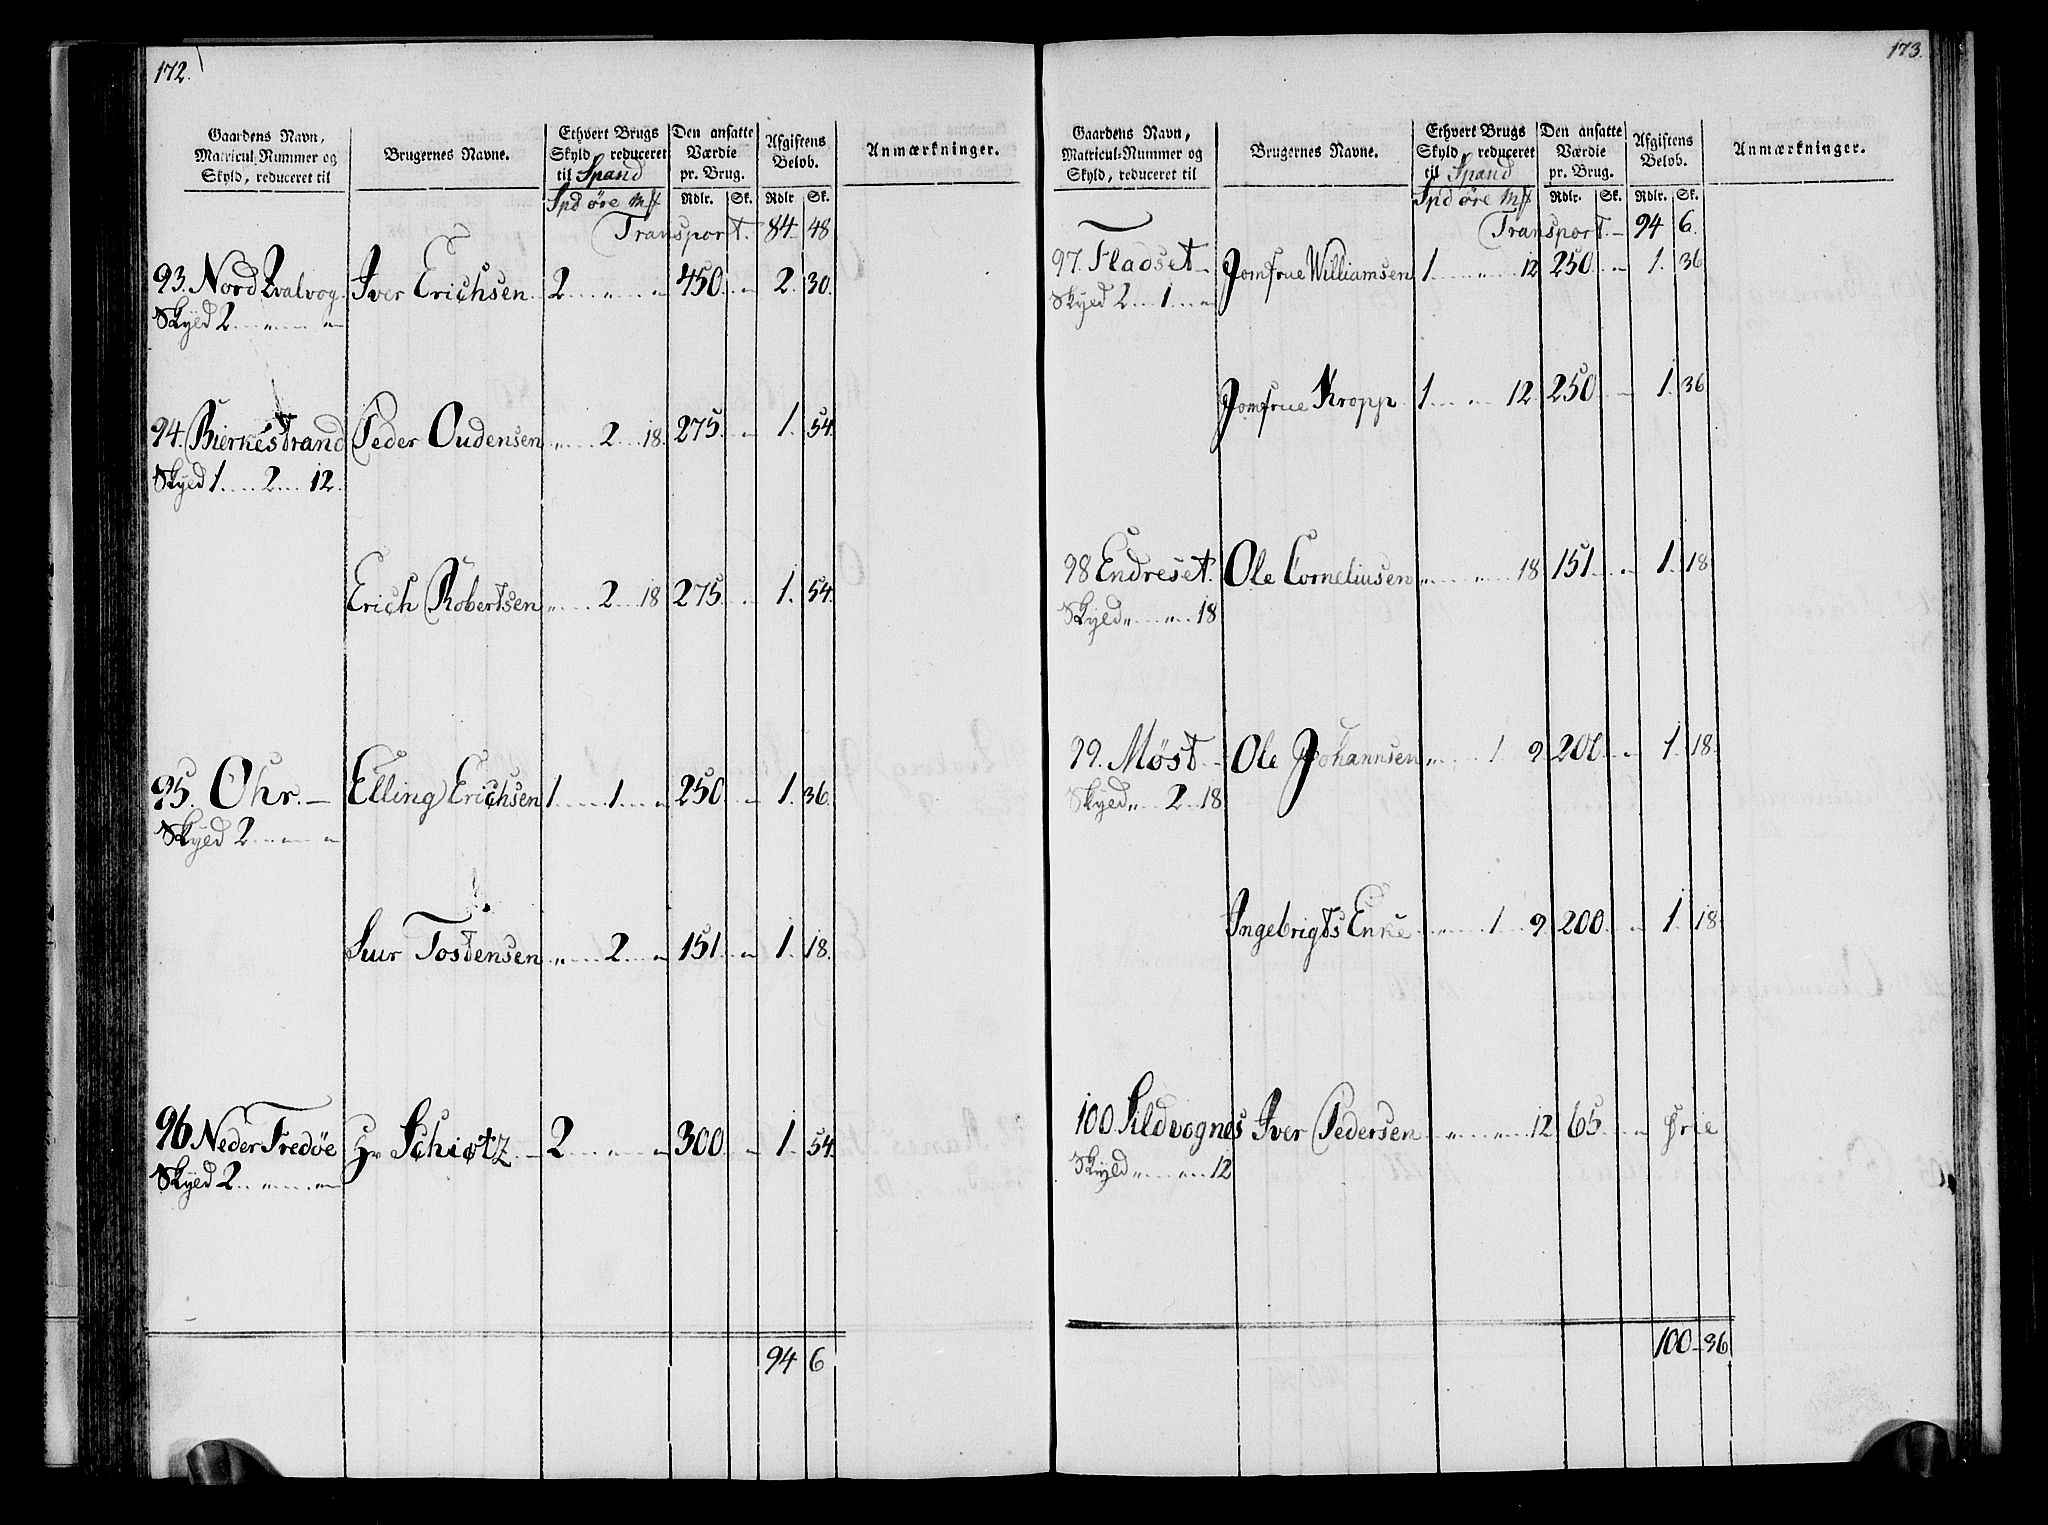 172.
Gaardens Navn, Matricul-Nummer og Skyld, reduceret til
Brugernes Navne.
Ethvert Brugs Skyld reduceret til Spand
Den ansatte Værdie pr. Brug.
Afgiftens Beløb.
Anmærkninger.
Spd øre Mk
Rdlr. Sk. Rdlr Sk.
Transport. 84 48
93. Nord Qvalvog Iver Erichsen 2 „ „ 450 „ 2. 30.
Skyld 2 „ „
94. Bierkestrand Peder Oudensen „ 2 18. 275 „ 1. 54.
Skyld 1 2 12.
Erich Robertsen „ 2 18 275 „ 1. 54.
95. Ohr. Elling Erichsen 1 1 „ 250 „ 1. 36.
Skyld 2 „ „
Siur Tostensen „ 2 „ 151 „ 1. 18.
96 Neder Fredøe Hr Schiøtz 2 „ „ 300 „ 1. 54.
Skyld 2 „ „
94 6
173.
Gaardens Navn, Matricul-Nummer og Skyld, reduceret til
Brugernes Navne.
Ethvert Brugs Skyld reduceret til Spand
Den ansatte Værdie pr. Brug.
Afgiftens Beløb.
Anmærkninger.
Spd øre Mk
Rdlr. Sk. Rdlr. Sk.
Transport. 94 6.
97. Fladset Jomfrue Williamsen 1 „ 12 250 „ 1. 36
Skyld 2 1 „
Jomfrue Kropp 1 „ 12 250 „ 1. 36
98 Endreset. Ole Corneliusen „ „ 18 151 „ 1. 18
Skyld „ „ 18
99. Møst Ole Johannsen „ 1 9 200 „ 1. 18.
Skyld „ 2 18
Ingebrigts Enke „ 1 9 200 „ 1. 18.
100 Sildvognes Iver Pedersen „ „ 12 65 „ frie
Skyld „ „ 12
100 36